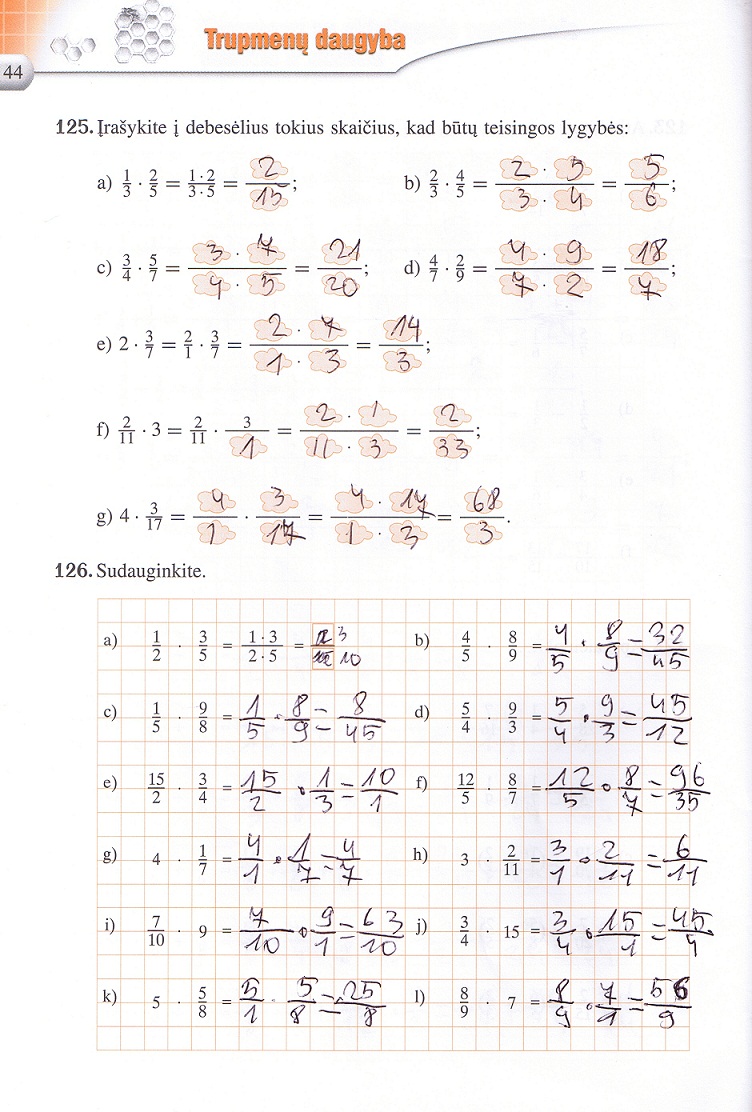 44
Trupmenų daugyba
125. Įrašykite į debesėlius tokius skaičius, kad būtų teisingos lygybės:
a) 1/3 · 2/5 = 1·2/3·5 = 2/15; b) 2/3 · 4/5 = 2 · 5/3 · 4 = 5/6;
c) 3/4 · 5/7 = 3 · 7/4 · 5 = 21/20; d) 4/7 · 2/9 = 4 · 9/7 · 2 = 18/7;
e) 2 · 3/7 = 2/1 · 3/7 = 2 · 7/1 · 3 = 14/3;
f) 2/11 · 3 = 2/11 · 3/1 = 2 · 1/11 · 3 = 2/33;
g) 4 · 3/17 = 4/1 · 3/17 = 4 · 17/1 · 3 = 68/3.
126. Sudauginkite.
a) 1/2 · 3/5 = 1·3/2·5 = 3/10 b) 4/5 · 8/9 = 4/5 · 8/9 = 32/45
c) 1/5 · 9/8 = 1/5 · 8/9 = 8/45 d) 5/4 · 9/3 = 5/4 · 9/3 = 45/12
e) 15/2 · 3/4 = 15/2 · 1/3 = 10/1 f) 12/5 · 8/7 = 12/5 · 8/7 = 96/35
g) 4 · 1/7 = 4/1 · 1/7 = 4/7 h) 3 · 2/11 = 3/1 · 2/11 = 6/11
i) 7/10 · 9 = 7/10 · 9/1 = 63/10 j) 3/4 · 15 = 3/4 · 15/1 = 45/4
k) 5 · 5/8 = 5/1 · 5/8 = 25/8 l) 8/9 · 7 = 8/9 · 7/1 = 56/9